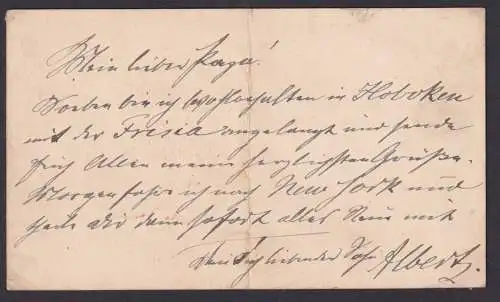 Mein lieber Papa!
Soeben bin ich wohlbehalten in Hoboken
mit der Frisia angelangt und sende
Euch Allen meine herzlichsten Grüße.
Morgen fahre ich nach New York und
theile Dir dann sofort alles Neue mit
Dein Dich liebender Sohn Albert.